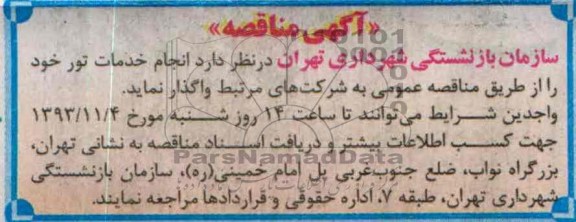 «آگهی مناقصه»
سازمان بازنشستگی شهرداری تهران درنظر دارد انجام خدمات تور خود
را از طریق مناقصه عمومی به شرکت‌های مرتبط واگذار نماید.
واجدین شرایط می‌توانند تا ساعت ۱۴ روز شنبه مورخ ۱۳۹۳/۱۱/۴
جهت کسب اطلاعات بیشتر و دریافت اسناد مناقصه به نشانی تهران،
ParsNamadData
بزرگراه نواب، ضلع جنوب‌غربی پل امام خمینی(ره)، سازمان بازنشستگی
شهرداری تهران، طبقه ۷، اداره حقوقی و قراردادها مراجعه نمایند.